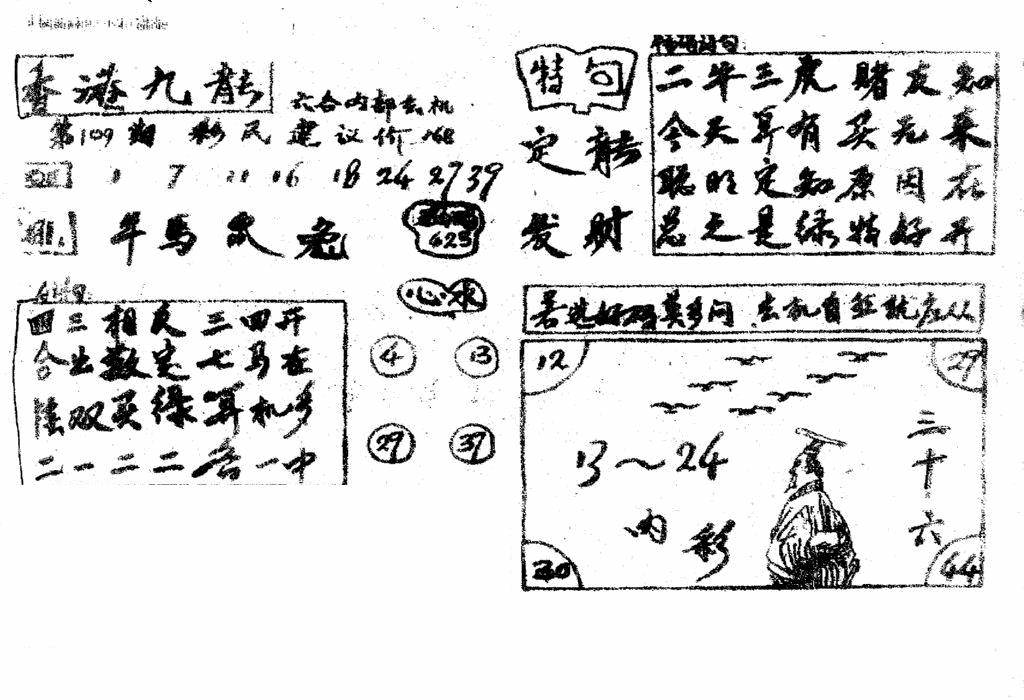 香港九龍
六合内部玄机
第109期 彩民建议价168
7 11 16 18 24 27 39
牛馬鼠兔
623
心水
四三相反三四开
合出数定七马在
陆双买绿算机多
二一二二合一中
4 13
29 37
特句
定能
发财
特码诗句
二牛三虎赌友知
今天算有买无来
聪明定知原因在
总之是绿特好开
若选好码莫多问 玄机自然就在从
12 29
13～24
内彩
三十六
30 44